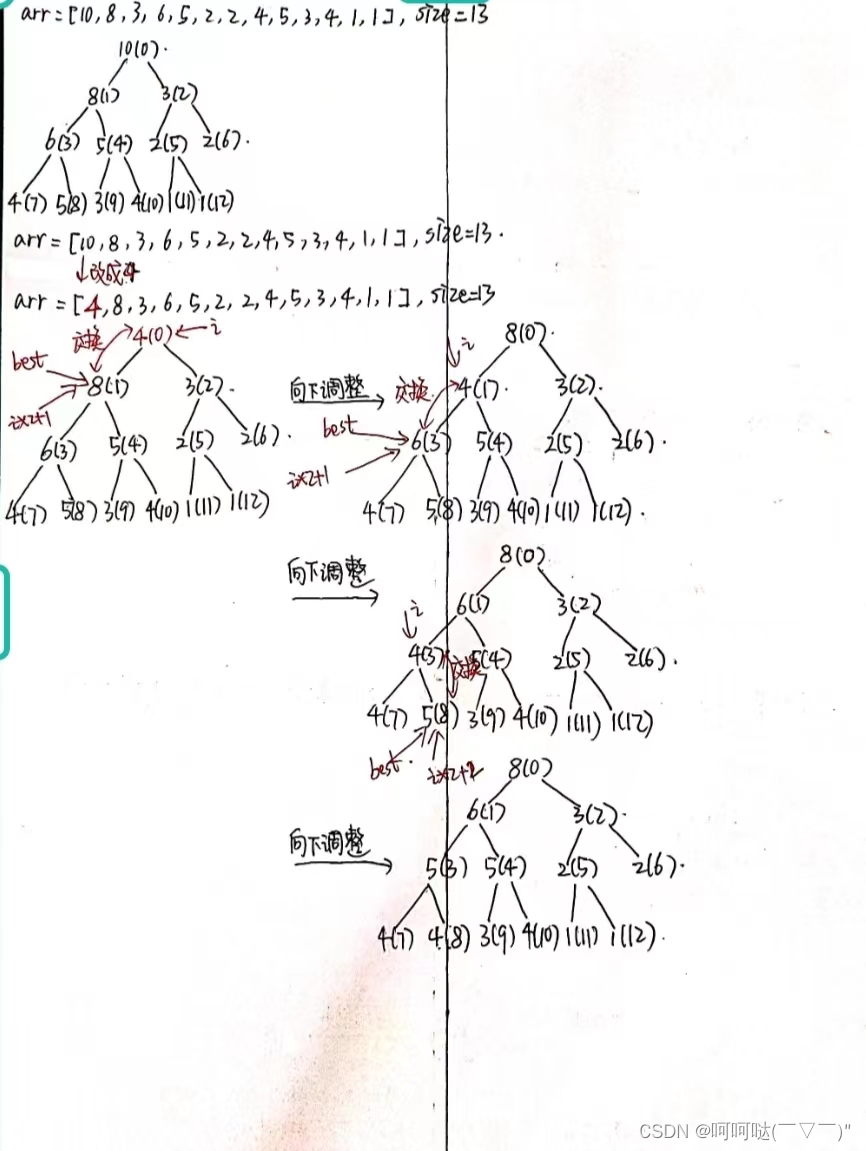 arr=[10,8,3,6,5,2,2,4,5,3,4,1,1],size=13
10(0).
8(1) 3(2)
6(3) 5(4) 2(5) 2(6).
4(7) 5(8) 3(9) 4(10) 1(11) 1(12)
arr=[10,8,3,6,5,2,2,4,5,3,4,1,1],size=13.
↓改成4
arr=[4,8,3,6,5,2,2,4,5,3,4,1,1],size=13
交换 4(0) ← i
best
8(1) 3(2).
i×2+1
6(3) 5(4) 2(5) 2(6).
4(7) 5(8) 3(9) 4(10) 1(11) 1(12)
8(0).
i
向下调整 交换 4(1). 3(2).
best
6(3) 5(4) 2(5) 2(6).
i×2+1
4(7) 5(8) 3(9) 4(10) 1(11) 1(12).
8(0)
向下调整
6(1) 3(2)
i
4(3) 交换 5(4) 2(5) 2(6).
4(7) 5(8) 3(9) 4(10) 1(11) 1(12)
best. i×2+2
8(0)
6(1) 3(2).
向下调整
5(3) 5(4) 2(5) 2(6).
4(7) 4(8) 3(9) 4(10) 1(11) 1(12).
CSDN @呵呵哒(￣▽￣)"